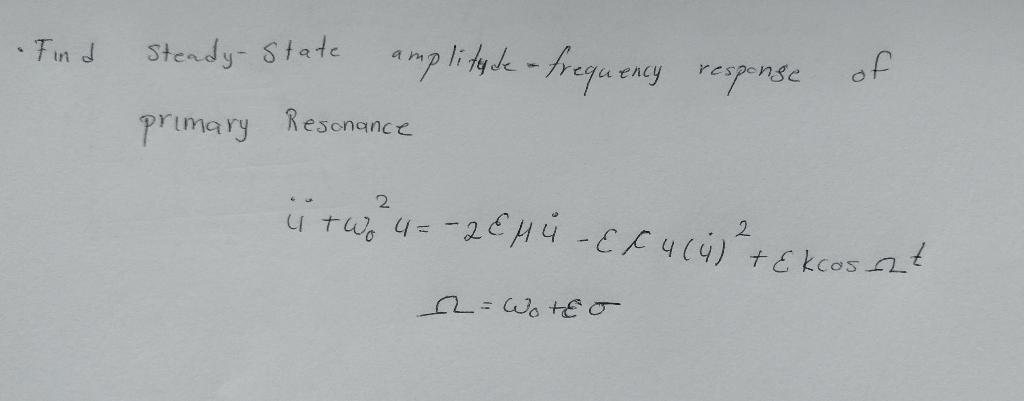 · Find Steady-State amplitude-frequency response of
primary Resonance
ü + ω₀² u = -2εμu̇ - εκ u(u̇)² + εkcos Ωt
Ω = ω₀ + εσ